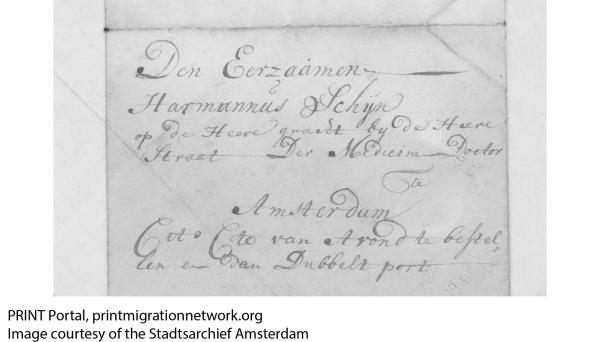 Den Eerzaamen
Harmannus Schijn
op de Heere gracht by de Heere
Straat Der Medicim Doctor
te
Amsterdam
Cito Cito van Avond te bestel,
len en dan Dubbelt port
PRINT Portal, printmigrationnetwork.org
Image courtesy of the Stadtsarchief Amsterdam